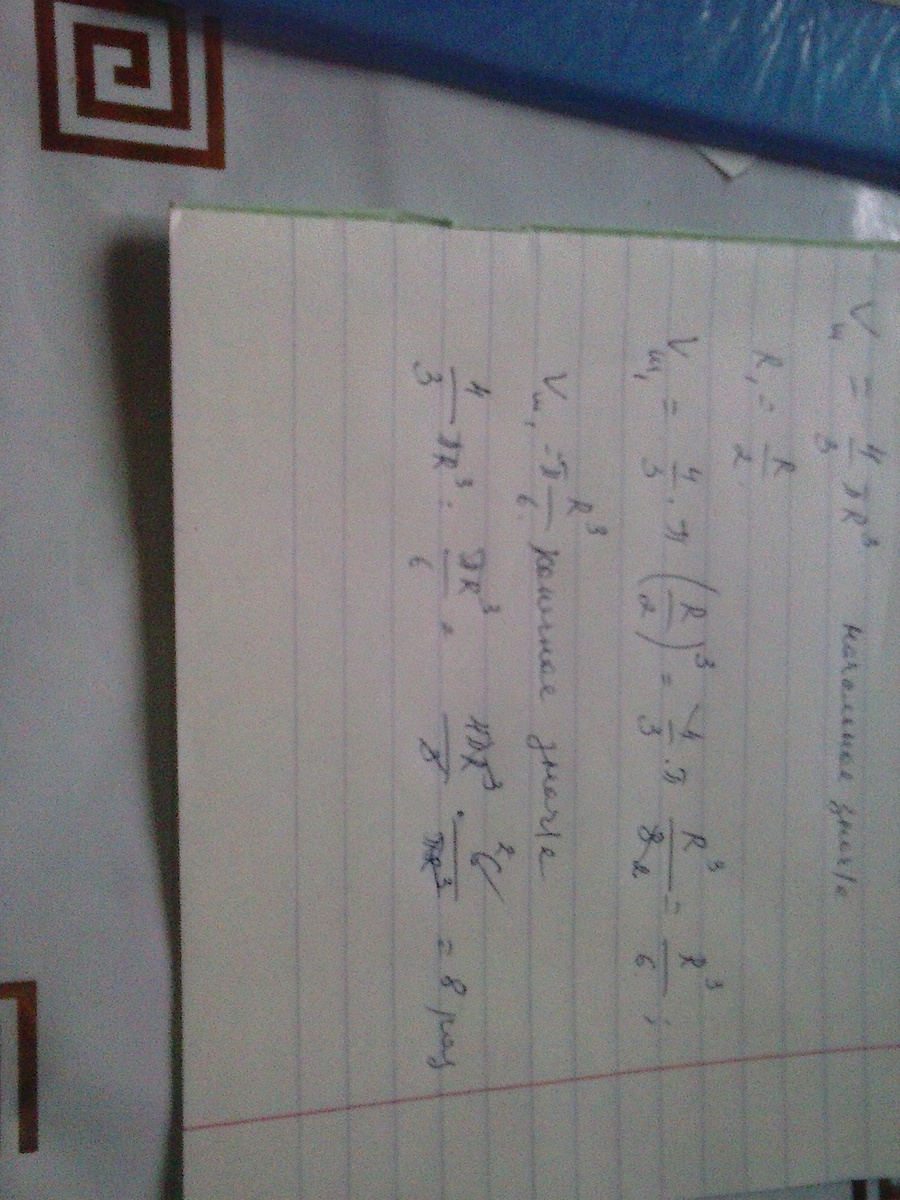 Vш = 4/3 πR³ начальное знач/е
R₁ = R/2
Vш₁ = 4/3 · π (R/2)³ = 4/3 · π R³/82 = R³/6 ;
Vш₁ = π R³/6 конечное знач/е
4/3 πR³ : πR³/6 = 4πR³/3 · 6 2/πR³ = 8 раз